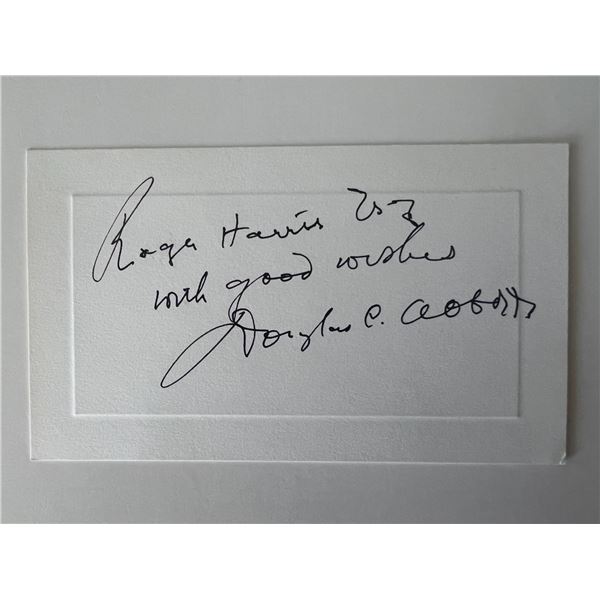 Roger Harris Esq
with good wishes
Douglas C. Abbott